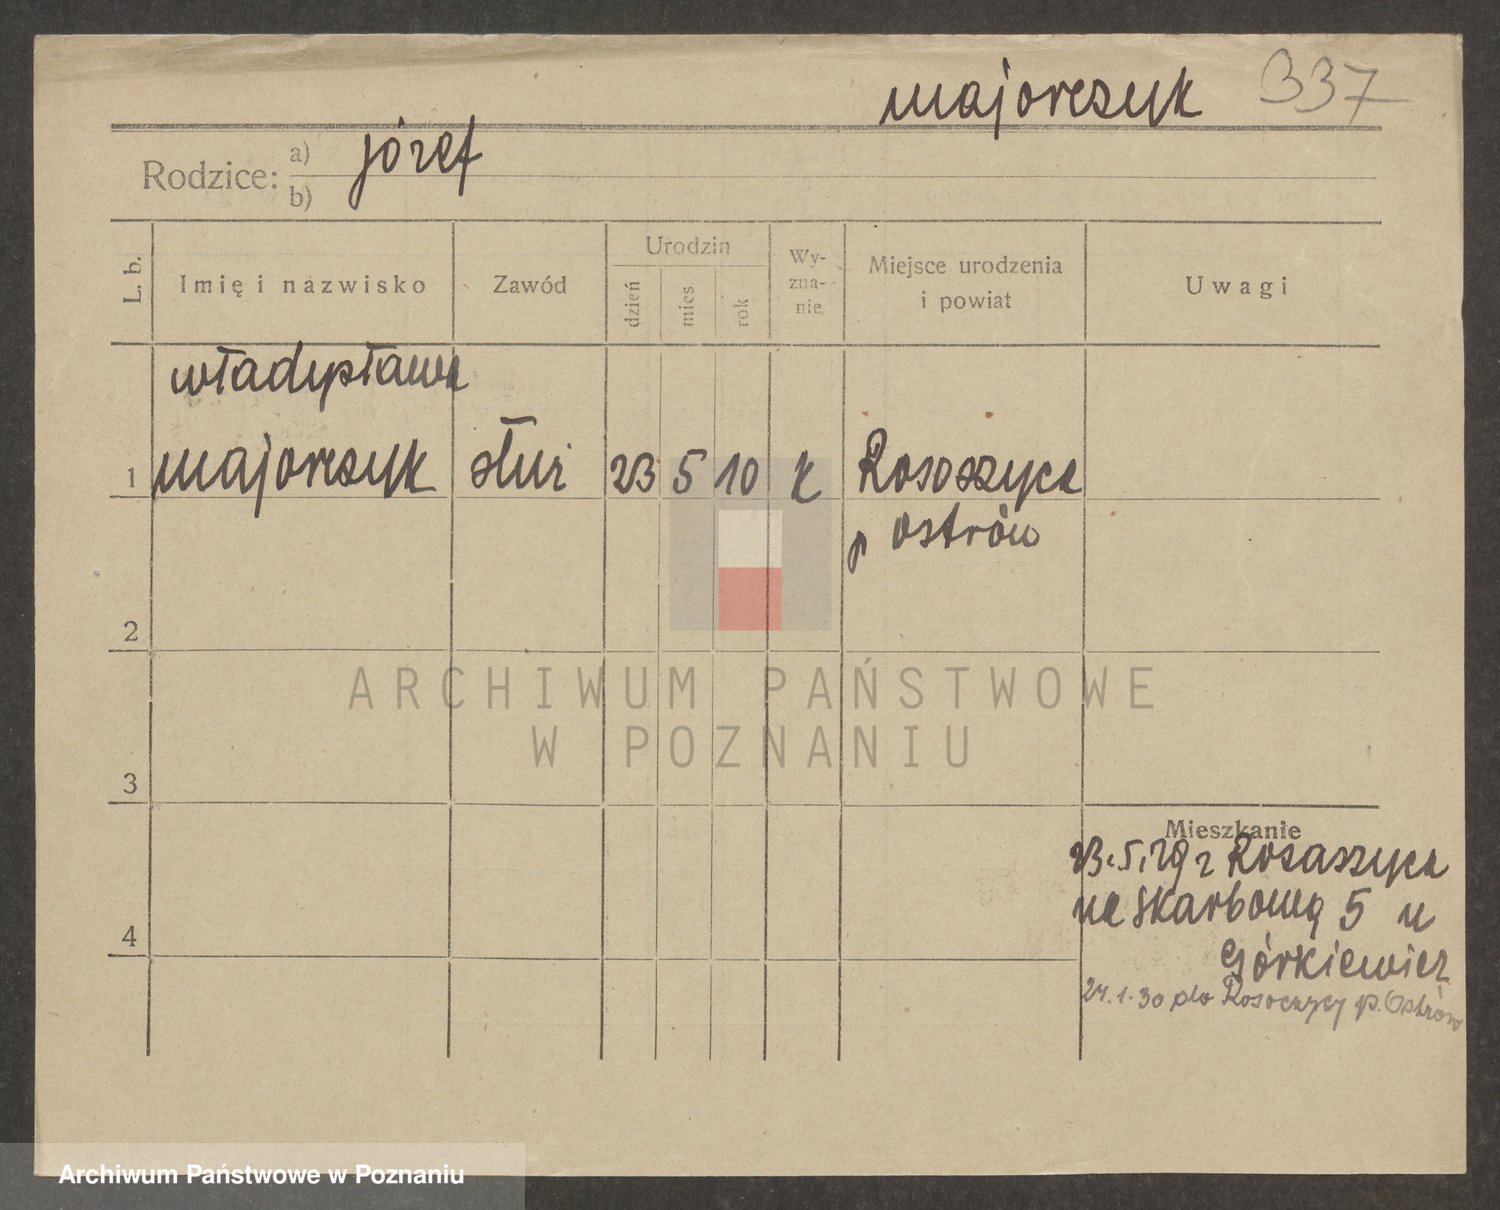 majorczyk 337
Rodzice: a) józef
b)
L. b. Imię i nazwisko Zawód Urodzin dzień mies rok Wy-zna-nie Miejsce urodzenia i powiat Uwagi
władysława
1 majorczyk służ 23 5 10 k Rososzyca
p Ostrów
2
ARCHIWUM PAŃSTWOWE
W POZNANIU
3
Mieszkanie
23.5.29 z Rosaszyca
na Skarbową 5 u
Górkiewicz
4
24.1.30 do Rososzycy p. Ostrów
Archiwum Państwowe w Poznaniu